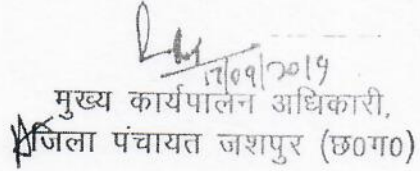 17/09/2019
मुख्य कार्यपालन अधिकारी,
जिला पंचायत जशपुर (छ0ग0)